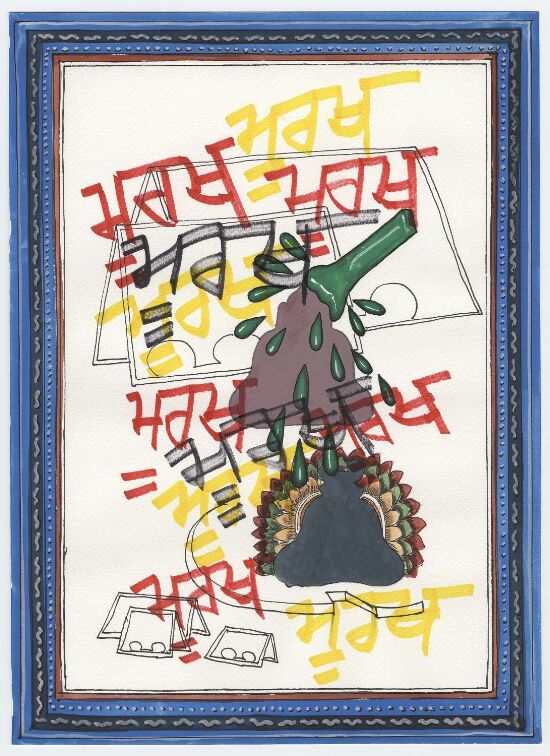 ਮੂਰਖ
ਮੂਰਖ
ਮੂਰਖ
ਮੂਰਖ
ਮੂਰਖ
ਮੂਰਖ
ਮੂਰਖ
ਮੂਰਖ
ਮੂਰਖ
ਮੂਰਖ
ਮੂਰਖ